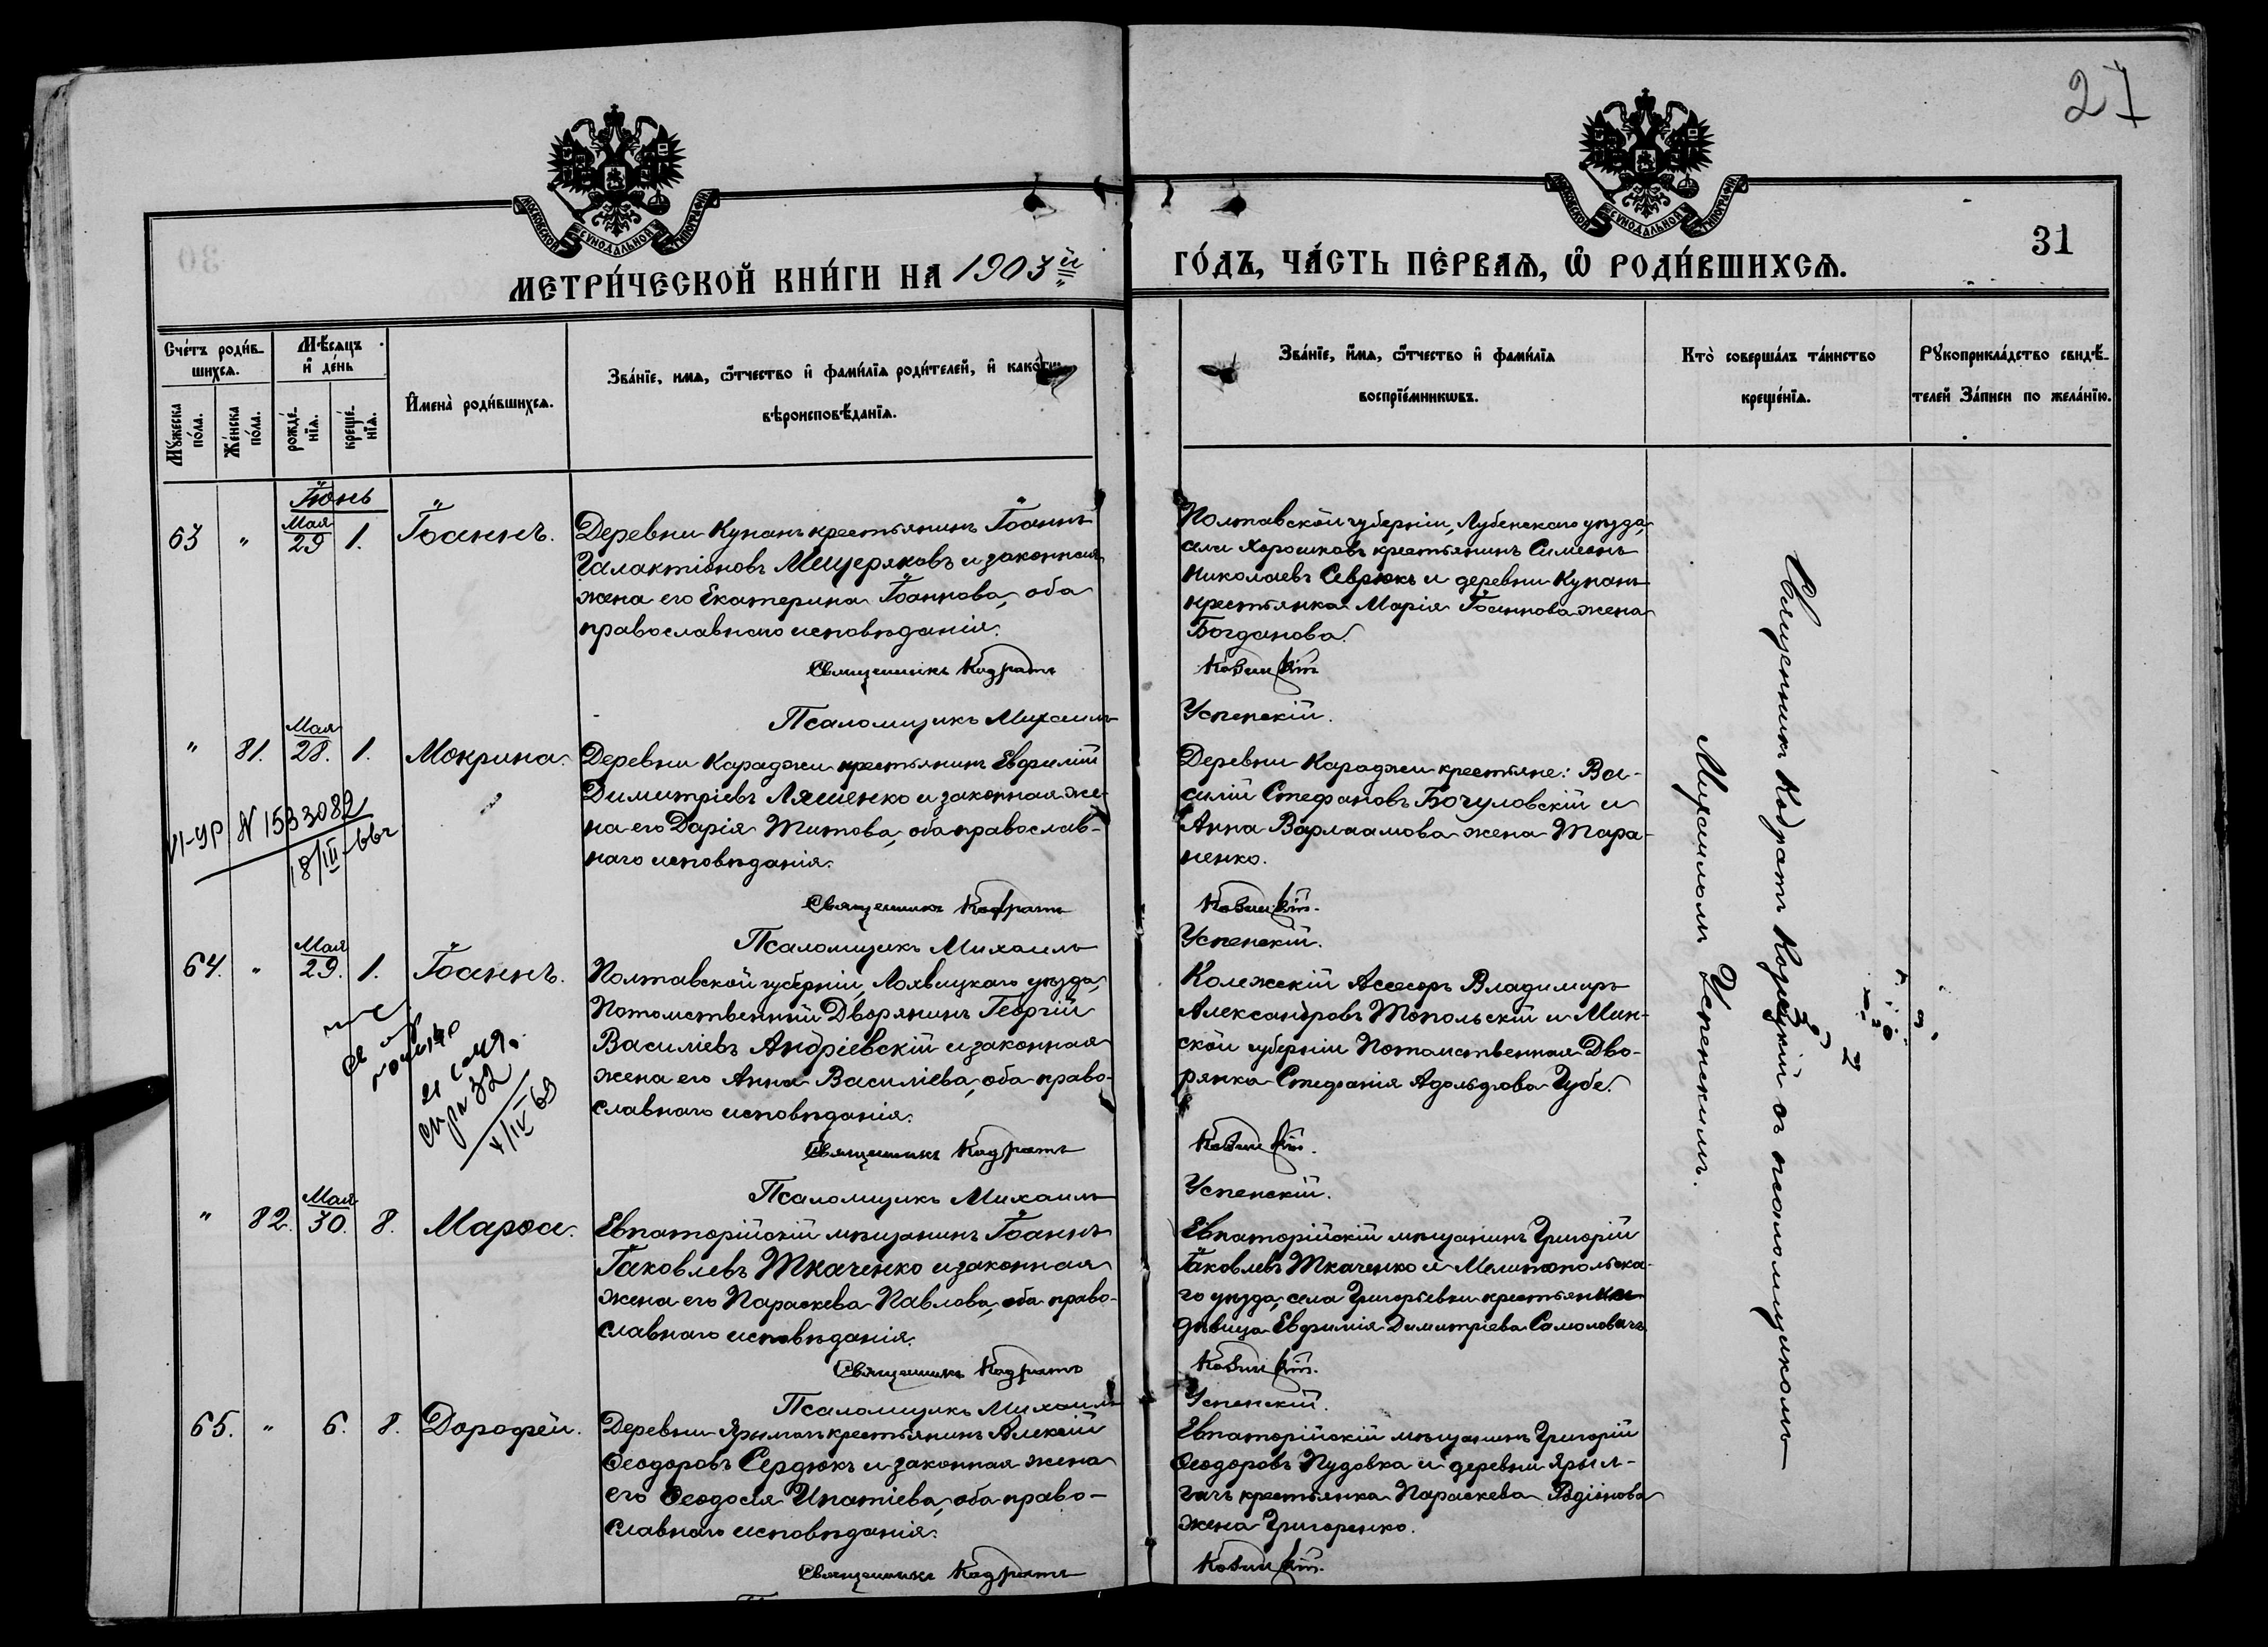 27
МОСКОВСКОЙ СѴНОДАЛЬНОЙ ТИПОГРАФІИ
МОСКОВСКОЙ СѴНОДАЛЬНОЙ ТИПОГРАФІИ
30
31
МЕТРИ́ЧЕСКОЙ КНИ́ГИ НА 1903й ГО́ДЪ, ЧА́СТЬ ПЕ́РВАѦ, Ѡ РОДИ́ВШИХСѦ.
Сче́тъ роди́в-
шихсѧ.
Мѣ́сѧцъ
и҆ де́нь
Мꙋ́жеска
по́ла.
Же́нска
по́ла.
рожде́-
нїѧ.
креще́-
нїѧ.
И҆мена̀ роди́вшихсѧ.
Зва́нїе, имѧ, ѻ҆́тчество и҆ фамѝлїѧ роди́телей, и҆ како́гѡ
вѣроисповѣ́данїѧ.
Зва́нїе, и҆́мѧ, ѻ҆́тчество и҆ фамѝлїѧ
воспрїе́мникѡвъ.
Кто̀ соверша́лъ та́инство
креще́нїѧ.
Рꙋкоприкла́дство свидѣ́-
телей За́писи по жела́нїю.
Іюнь
63 " Мая 29 1. Іоаннъ.
Деревни Кунанъ крестьянинъ Іоаннъ
Галактіоновъ Мещеряковъ и законная
жена его Екатерина Іоаннова, оба
православнаго исповѣданія.
Священникъ Кодратъ
Псаломщикъ Михаилъ
Полтавской губерніи, Лубенскаго уѣзда,
села Хорошковъ крестьянинъ Симеонъ
Николаевъ Севрюкъ и деревни Кунанъ
крестьянка Марія Іоаннова жена
Богданова.
Успенскій.
" 81. Мая 28. 1. Мокрина.
Деревни Караджи крестьянинъ Евфимій
Димитріевъ Ляшенко и законная же-
на его Дарія Титова, оба православ-
наго исповѣданія.
Священникъ Кодратъ
Псаломщикъ Михаилъ
Деревни Караджи крестьяне: Ва-
силій Стефановъ Бочуловскій и
Анна Варлаамова жена Тара-
ненко.
Успенскій.
II-УР N 1533082
18/III-66г
64. " Мая 29. 1. Іоаннъ.
Полтавской губерніи, Лохвицкаго уѣзда,
Потомственный Дворянинъ Георгій
Василіевъ Андріевскій и законная
жена его Анна Василіева, оба право-
славнаго исповѣданія.
Священникъ Кодратъ
Псаломщикъ Михаилъ
Колежскій Асесоръ Владимиръ
Александровъ Топольскій и Мин-
ской губерніи Потомственная Дво-
рянка Стефанія Адольфова Губе.
Успенскій.
" 82. Мая 30. 8. Марѳа.
Евпаторійскій мѣщанинъ Іоаннъ
Іаковлевъ Ткаченко и законная
жена его Параскева Павлова, оба право-
славнаго исповѣданія.
Священникъ Кодратъ
Псаломщикъ Михаилъ
Евпаторійскій мѣщанинъ Григорій
Іаковлевъ Ткаченко и Мелитопольска-
го уѣзда, села Григорьевки крестьянка
дѣвица Евфимія Димитріева Самоловичъ.
Успенскій.
65. " 6. 8. Дорофей.
Деревни крестьянинъ Алексій
Ѳеодоровъ Сердюкъ и законная жена
его Ѳеодосія Ипатіева, оба право-
славнаго исповѣданія.
Священникъ Кодратъ
Евпаторійскій мѣщанинъ Григорій
Ѳеодоровъ Пудовка и деревни Ярыл-
гачъ крестьянка Параскева Родіонова
жена Григоренко.
Священникъ Кодратъ съ псаломщикомъ
Михаиломъ Успенскимъ.